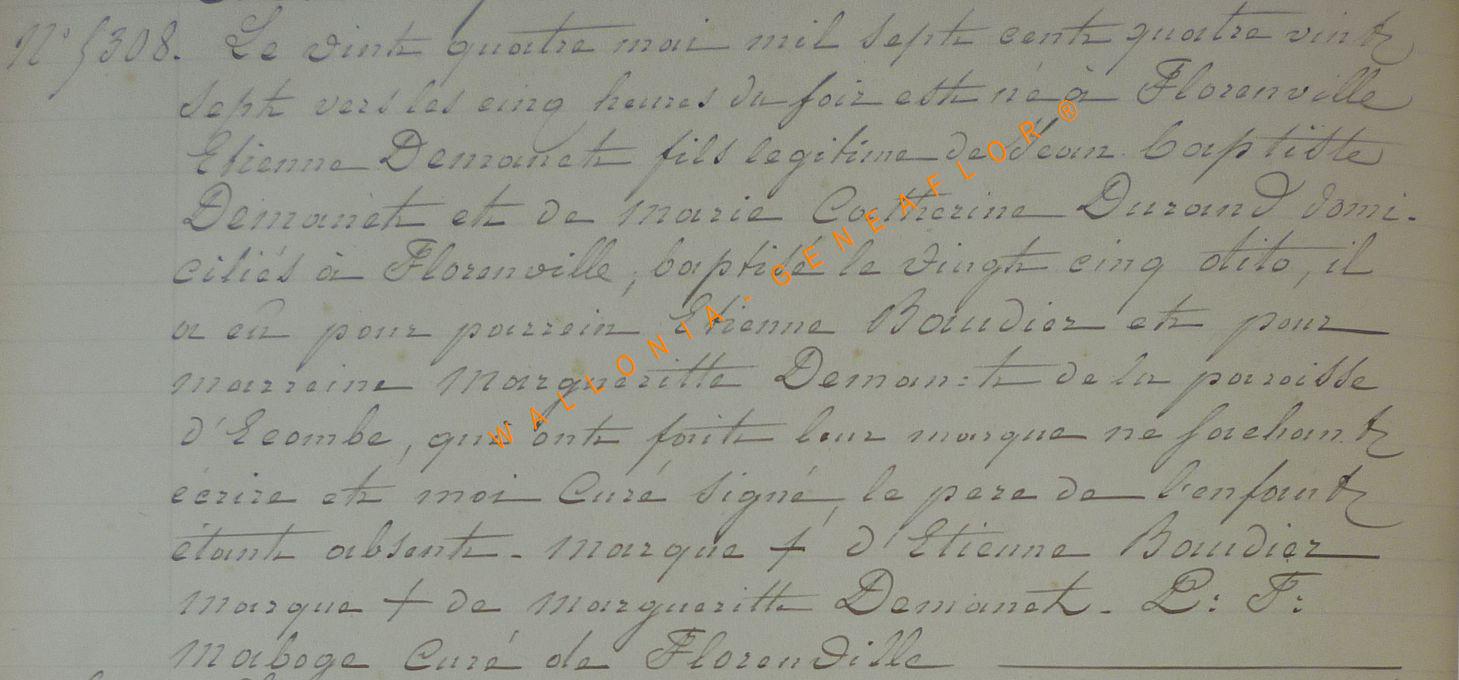 N° 5308. Le vint quatre mai mil sept cent quatre vint
sept vers les cinq heures du soir est né à Florenville
Etienne Demanet fils legitime de Jean baptiste
Demanet et de marie Catherine Durand domi-
ciliés à Florenville, baptisé le vingt cinq dito, il
a eû pour parrein Etienne Baudier et pour
marreine Margueritte Demanet de la paroisse
d'Ecombe, qui ont fait leur marque ne sachant
écrire et moi Curé signé, le pere de l'enfant
étant absent. marque + d'Etienne Baudier
marque + de margueritte Demanet. L: F:
Maboge Curé de Florenville
WALLONIA - GENEAFLOR ®